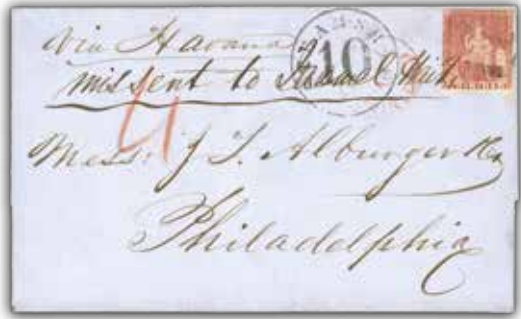 via Havana
missent to
10
4
Mess: J T. Alburger
Philadelphia